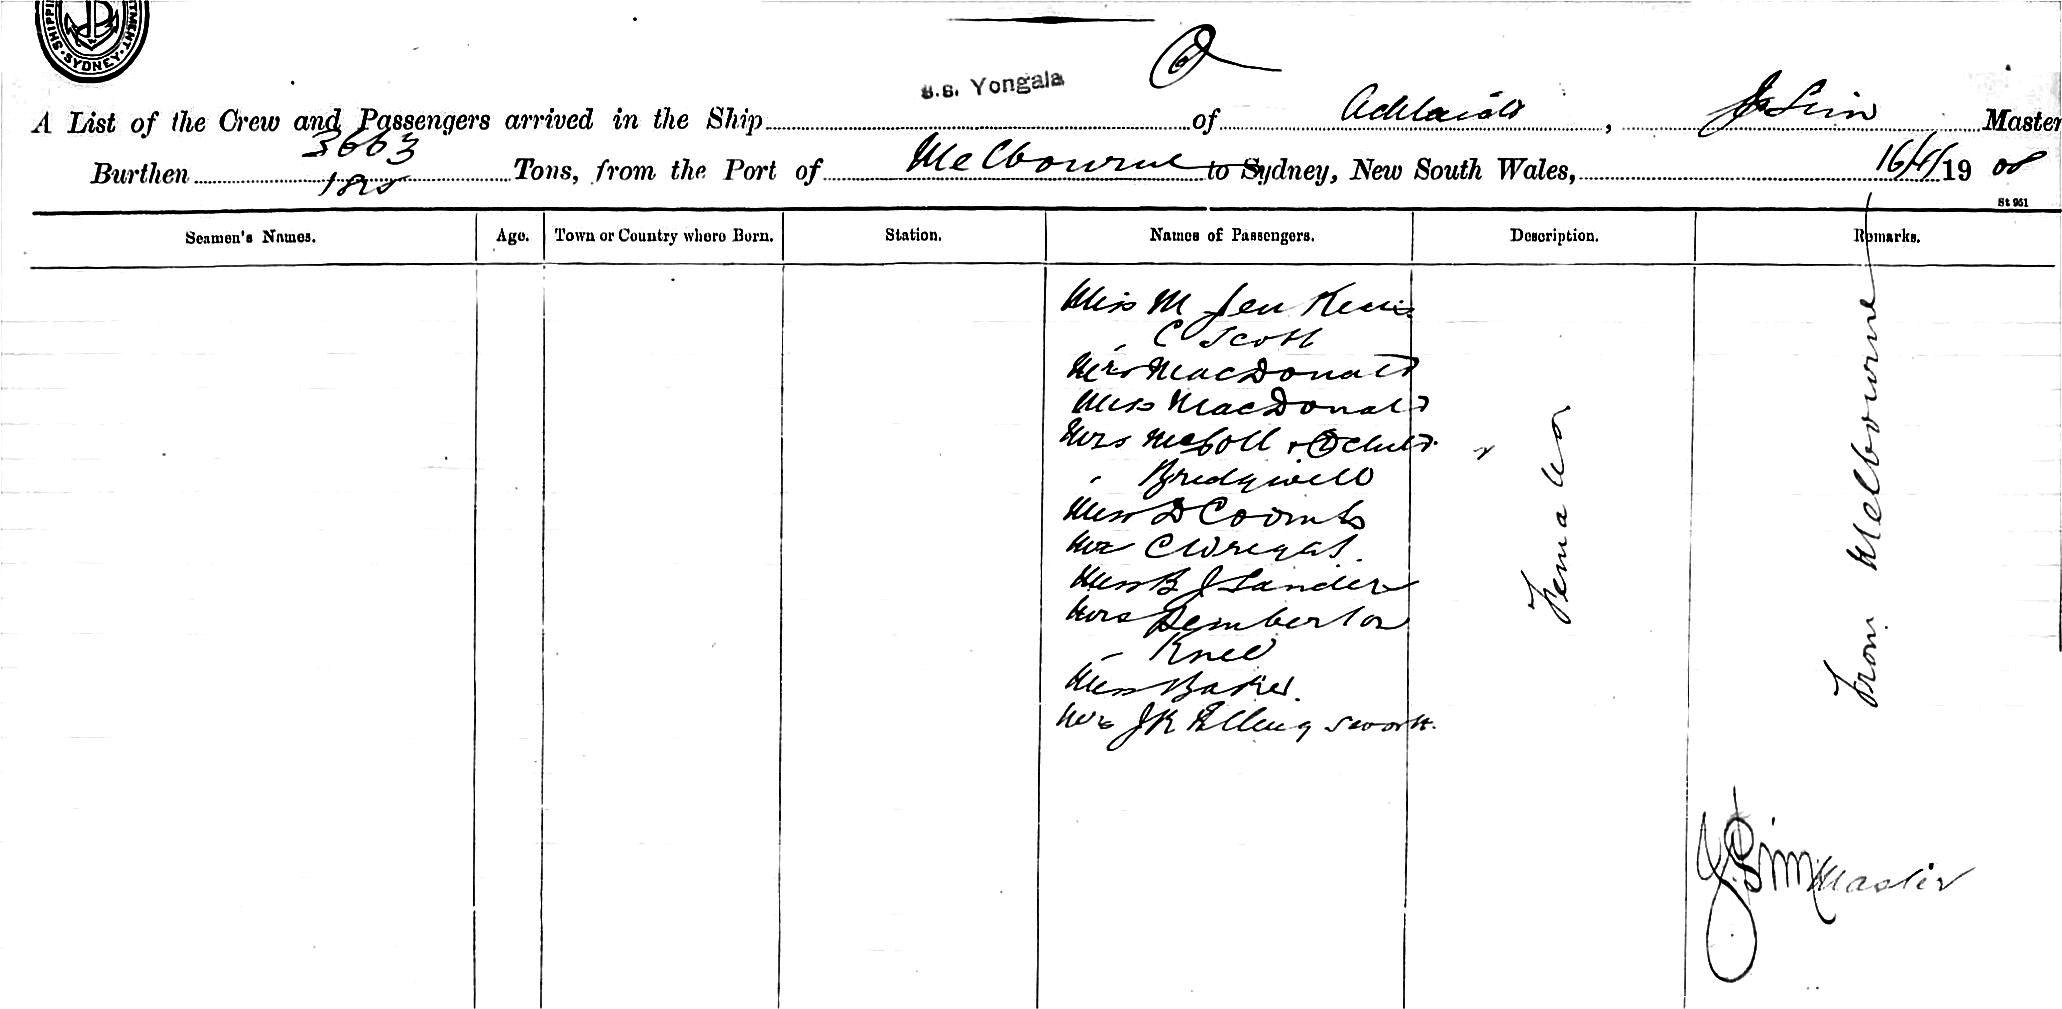 SHIPPI TMENT. SYDNEY.
s.s. Yongala
A List of the Crew and Passengers arrived in the Ship of Adelaide, J Sim Master
Burthen 3663 1825 Tons, from the Port of Melbourne to Sydney, New South Wales, 16/4/1908
St 951
Seamen's Names. Age. Town or Country where Born. Station. Names of Passengers. Description. Remarks.
Miss M Jenkins
" C Scott
Mrs MacDonald
Miss MacDonald
Mrs McColl + child
" Bridgwell
Miss D Coombs
Mrs C Wregat
Miss B J Lander
Mrs Pemberton
" Knee
Miss Baker.
Mrs JK Illingsworth.
Females
From Melbourne
J. Sim Master